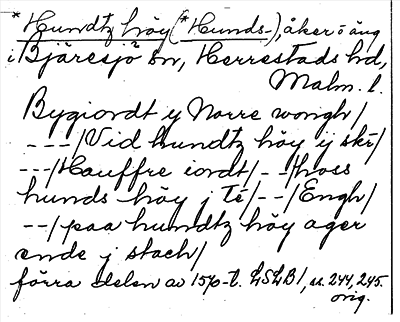 * Hundtz höy (* Hunds-), åker o äng
i Bjäresjö sn, Herrestads hd,
Malm. l.
Bygiordt y Norre wongh/
---/Vid hundtz höy ij skr/
---/Hauffre iordt/--/hoss
hunds höy j té/--/Engh/
--/paa hundtz höy ager
ende j stach/
förra delen av 15/0-t. LSLB1, ss. 244, 245.
orig.